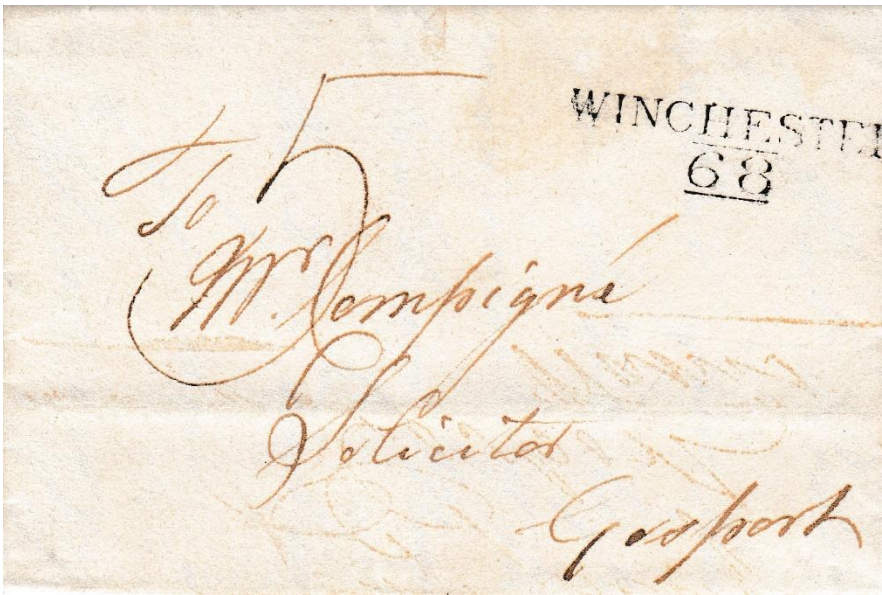 5
WINCHESTER
68
To
Mr. Compigné
Solicitor
Gosport